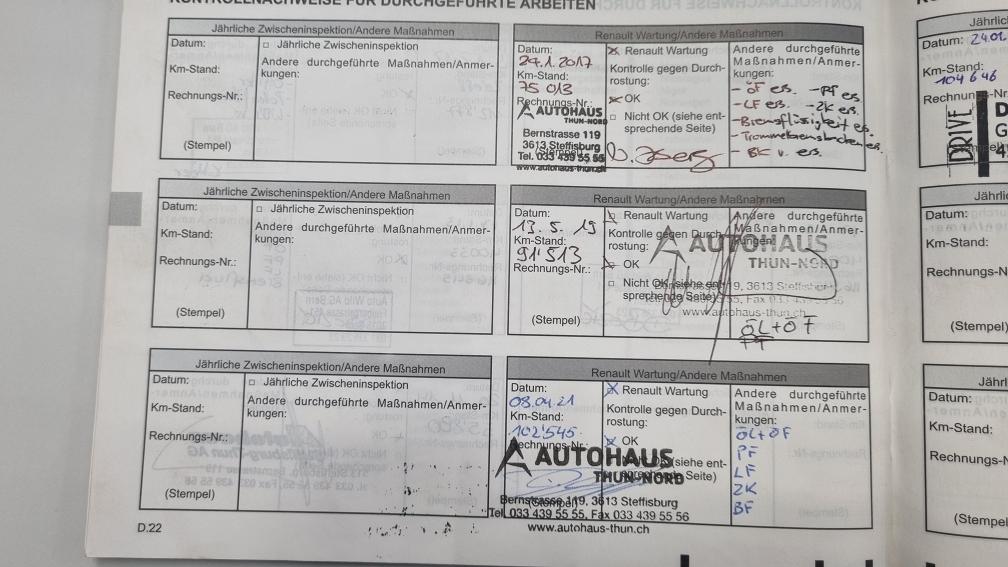 KONTROLLNACHWEISE FÜR DURCHGEFÜHRTE ARBEITEN
Jährliche Zwischeninspektion/Andere Maßnahmen
Datum:
□ Jährliche Zwischeninspektion
Km-Stand:
Andere durchgeführte Maßnahmen/Anmer-
kungen:
Rechnungs-Nr.:
(Stempel)
Renault Wartung/Andere Maßnahmen
Datum:
24.1.2017
Km-Stand:
75 013
Rechnungs-Nr.:
AUTOHAUS
THUN-NORD
Bernstrasse 119
3613 Steffisburg
Tel. 033 439 55 55
www.autohaus-thun.ch
Renault Wartung
Kontrolle gegen Durch-
rostung:
OK
□ Nicht OK (siehe ent-
sprechende Seite)
Andere durchgeführte
Maßnahmen/Anmer-
kungen:
- ÖF es. - PF es.
- LF es. - ZK es.
- Bremsflüssigkeit es.
- BK v. ers.
Jährliche Zwischeninspektion/Andere Maßnahmen
Datum:
□ Jährliche Zwischeninspektion
Km-Stand:
Andere durchgeführte Maßnahmen/Anmer-
kungen:
Rechnungs-Nr.:
(Stempel)
Renault Wartung/Andere Maßnahmen
Datum:
13.5.19
Km-Stand:
91'513
Rechnungs-Nr.:
(Stempel)
Renault Wartung
Kontrolle gegen Durch-
rostung:
OK
□ Nicht OK (siehe ent-
sprechende Seite)
Andere durchgeführte
Maßnahmen/Anmer-
kungen:
AUTOHAUS
THUN-NORD
9, 3613 Steffisburg
55, Fax 033 439 55 56
www.autohaus-thun.ch
ÖL+ÖF
Jährliche Zwischeninspektion/Andere Maßnahmen
Datum:
□ Jährliche Zwischeninspektion
Km-Stand:
Andere durchgeführte Maßnahmen/Anmer-
kungen:
Rechnungs-Nr.:
(Stempel)
Renault Wartung/Andere Maßnahmen
Datum:
08.04.21
Km-Stand:
102'545
Rechnungs-Nr.:
Renault Wartung
Kontrolle gegen Durch-
rostung:
OK
(siehe ent-
sprechende Seite)
(Stempel)
Andere durchgeführte
Maßnahmen/Anmer-
kungen:
ÖL+ÖF
PF
LF
ZK
BF
AUTOHAUS
THUN-NORD
Bernstrasse 119, 3613 Steffisburg
Tel. 033 439 55 55, Fax 033 439 55 56
www.autohaus-thun.ch
D.22
Jährlic
Datum: 24.01.
Km-Stand:
104 646
Rechnun
s-Nr.
DRIVE
Jäh
Datum:
Km-Stand:
Rechnungs-N
(Stempel)
Jährl
Datum:
Km-Stand:
Rechnungs-N
(Stempe